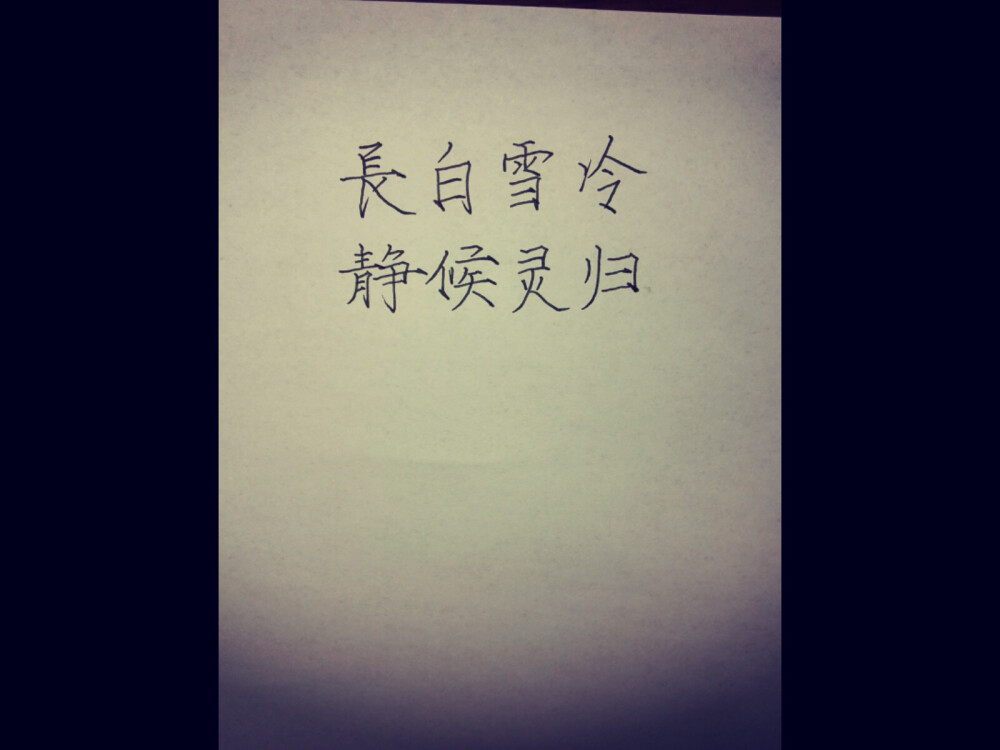 長白雪冷
静候灵归